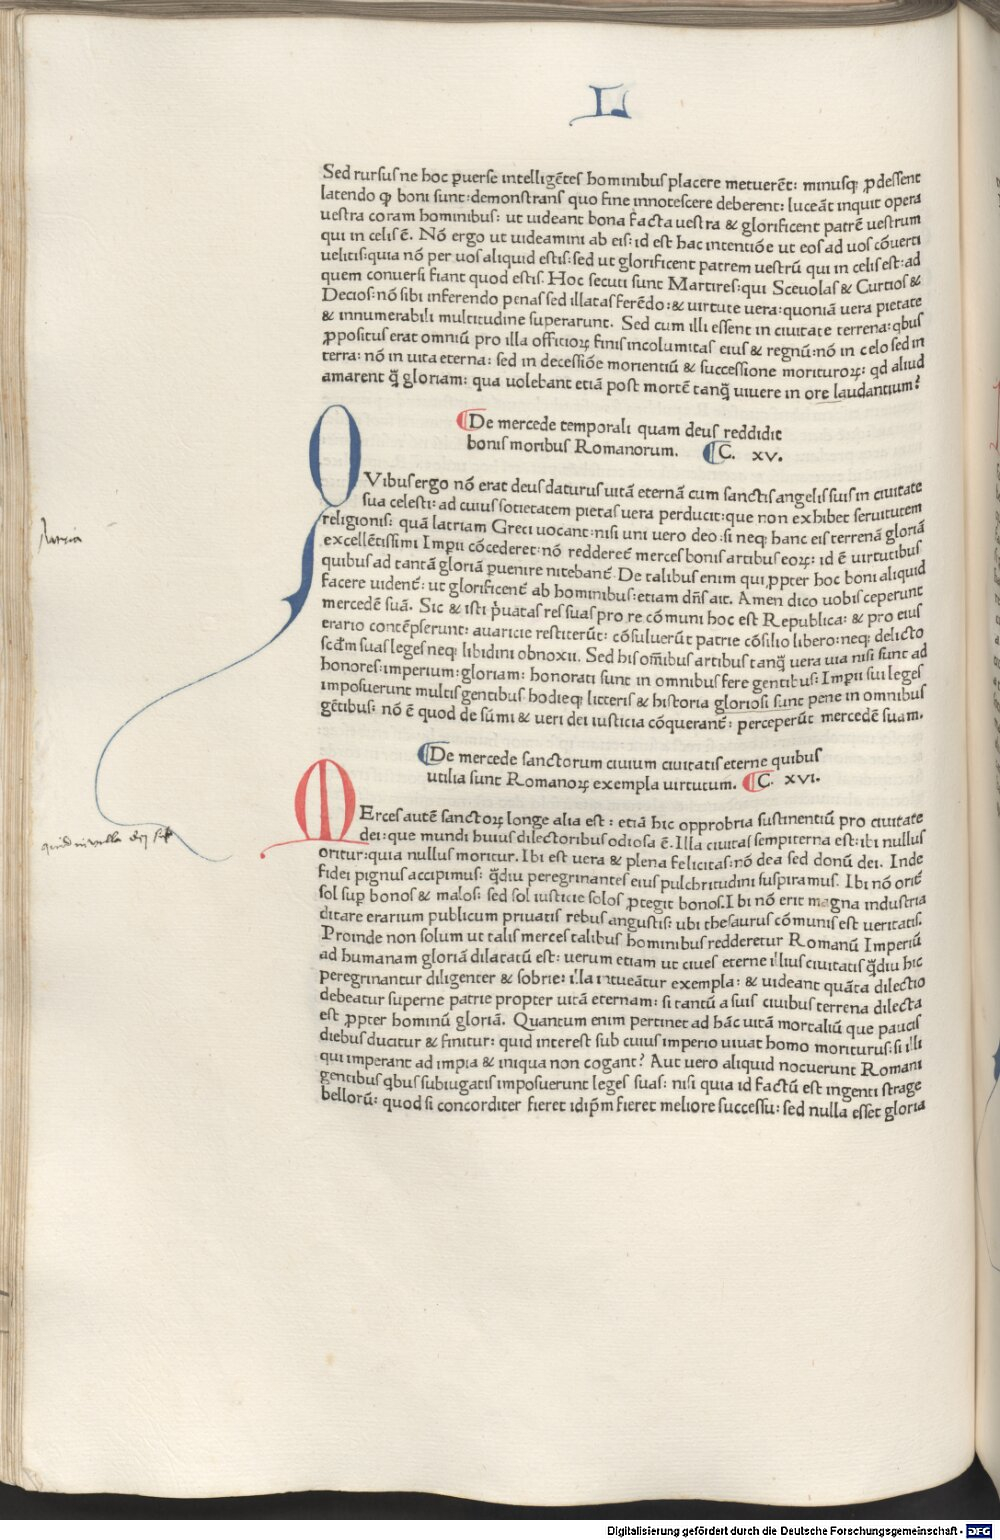 L
Sed rursus ne hoc ꝑuerse intelligẽtes hominibus placere metuerẽt: minusqꝫ ꝓdessent
latendo ꝙ boni sunt: demonstrans quo fine innotescere deberent: luceãt inquit opera
uestra coram hominibus: ut uideant bona facta uestra & glorificent patrẽ uestrum
qui in celis ẽ. Nõ ergo ut uideamini ab eis: id est hac intentiõe ut eos ad uos cõuerti
uelitis: quia nõ per uos aliquid estis: sed ut glorificent patrem uestrũ qui in celis est: ad
quem conuersi fiant quod estis. Hoc secuti sunt Martires: qui Sceuolas & Curtios &
Decios: nõ sibi inferendo penas sed illatas ferẽdo: & uirtute uera: quoniã uera pietate
& innumerabili multitudine superarunt. Sed cum illi essent in ciuitate terrena: qbus
ꝓpositus erat omniũ pro illa officioꝝ finis incolumitas eius & regnũ: nõ in celo sed in
terra: nõ in uita eterna: sed in decessiõe morientiũ & successione moriturоꝝ: qd aliud
amarent q̃ gloriam: qua uolebant etiã post mortẽ tanq̃ uiuere in ore laudantium?
De mercede temporali quam deus reddidit
bonis moribus Romanorum. C. xv.
QVibus ergo nõ erat deus daturus uitã eternã cum sanctis angelis suis in ciuitate
sua celesti: ad cuius societatem pietas uera perducit: que non exhibet seruitutem
religionis: quã latriam Greci uocant: nisi uni uero deo: si neqꝫ hanc eis terrenã gloriã
excellẽtissimi Imꝑii cõcederet: nõ redderet̃ merces bonis artibus eoꝝ: id ẽ uirtutibus
quibus ad tantã gloriã ꝑuenire nitebant̃. De talibus enim qui ꝓpter hoc boni aliquid
facere uident̃: ut glorificent̃ ab hominibus: etiam dñs ait. Amen dico uobis ceperunt
mercedẽ suã. Sic & isti p̃uatas res suas pro re cõmuni hoc est Republica: & pro eius
erario contẽpserunt: auaricie restiterũt: cõsuluerũt patrie cõsilio libero: neqꝫ delicto
scđm suas leges neqꝫ libidini obnoxii. Sed his om̃ibus artibus tanq̃ uera uia nisi sunt ad
honores: imperium: gloriam: honorati sunt in omnibus fere gentibus: Imꝑii sui leges
imposuerunt multis gentibus: hodieqꝫ litteris & historia gloriosi sunt pene in omnibus
gẽtibus: nõ ẽ quod de sũmi & ueri dei iusticia cõquerant̃: perceperũt mercedẽ suam.
De mercede sanctorum ciuium ciuitatis eterne quibus
utilia sunt Romanoꝝ exempla uirtutum. C. xvi.
MErces autẽ sanctoꝝ longe alia est: etiã hic opprobria sustinentiũ pro ciuitate
dei: que mundi huius dilectoribus odiosa ẽ. Illa ciuitas sempiterna est: ibi nullus
oritur: quia nullus moritur. Ibi est uera & plena felicitas: nõ dea sed donũ dei. Inde
fidei pignus accipimus: q̃diu peregrinantes eius pulchritudini suspiramus. Ibi nõ orit̃
sol suꝑ bonos & malos: sed sol iusticie solos ꝓtegit bonos. Ibi nõ erit magna industria
ditare erarium publicum priuatis rebus angustis: ubi thesaurus cõmunis est ueritatis.
Proinde non solum ut talis merces talibus hominibus redderetur Romanũ Imperiũ
ad humanam gloriã dilatatũ est: uerum etiam ut ciues eterne illius ciuitatis q̃diu hic
peregrinantur diligenter & sobrie: illa intueãtur exempla: & uideant quãta dilectio
debeatur superne patrie propter uitã eternam: si tantũ a suis ciuibus terrena dilecta
est ꝓpter hominũ gloriã. Quantum enim pertinet ad hãc uitã mortaliũ que paucis
diebus ducitur & finitur: quid interest sub cuius imperio uiuat homo moriturus: si illi
qui imperant ad impia & iniqua non cogant? Aut uero aliquid nocuerunt Romani
gentibus qbus subiugatis imposuerunt leges suas: nisi quia id factũ est ingenti strage
bellorũ: quod si concorditer fieret id ip̃m fieret meliore successu: sed nulla esset gloria
Digitalisierung gefördert durch die Deutsche Forschungsgemeinschaft - DFG